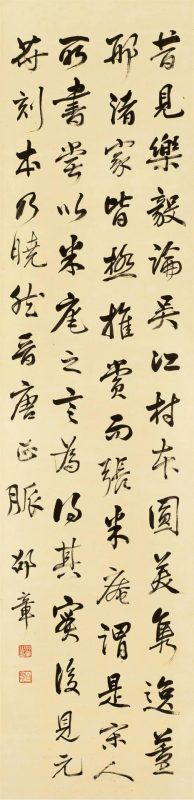 昔見樂毅論吳江村本圓美雋逸董
邢諸家皆極推賞而張米庵謂是宋人
所書嘗以米庵之言為得其實後見元
祐刻本乃曉然晉唐正脈 邵章